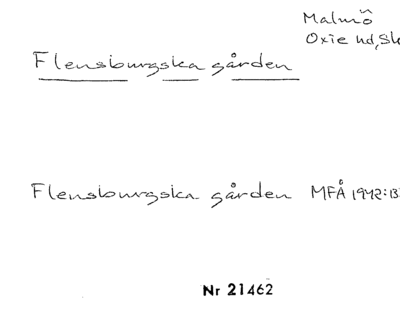 Malmö
Oxie hd, Sk
Flensburgska gården
Flensburgska gården MFÅ 1942:13
Nr 21462